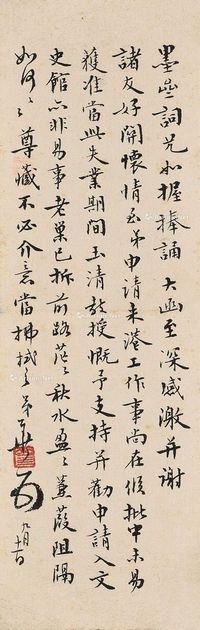 墨巢詞兄如握捧誦大函至深感激并謝
諸友好關懷情至弟申請來港工作事尚在候批中未易
獲准當此失業期間玉清教授慨予支持并勸申請入文
史館亦非易事老巢已拆前路茫茫秋水盈盈蒹葭阻隔
如何如何尊藏不必介意當拂拭之弟
九月十一日